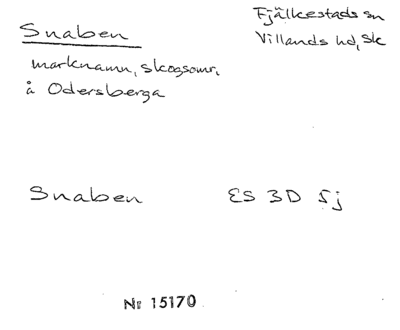 Snaben
Fjälkestads sn
Villands hd, Sk
marknamn, skogsomr,
å Odersberga
Snaben ES 3D 5j
Nr 15170